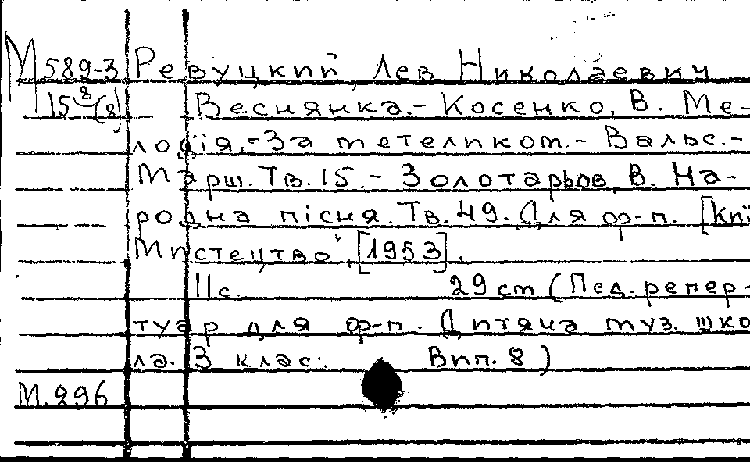 М 589-3 Ревуцкий, Лев Николаевич
15 8/(8) Веснянка.- Косенко, В. Ме-
лодія.-За метеликом.- Вальс.-
Марш. Тв. 15.- Золотарьов, В. На-
родна пісня. Тв. 49. Для ф-п. [Киї
Мистецтво, [1953].
11с. 29 cm (Пед. репер-
туар для ф-п. Дитяча муз. шко
ла. 3 клас. Вип. 8)
М.296